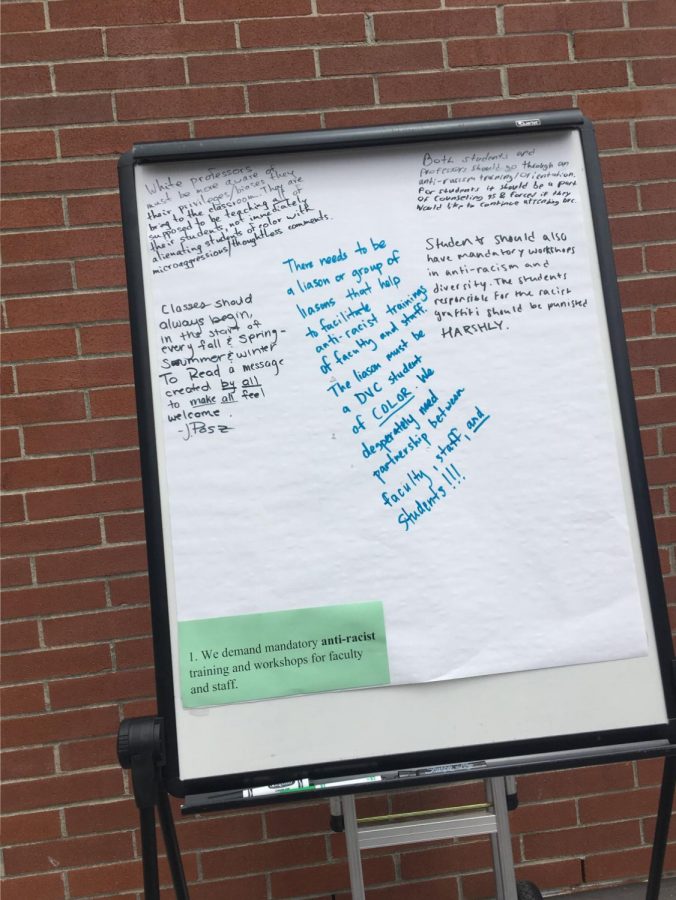 White professors
must be more aware of
their privileges/biases they
bring to the classroom. They are
supposed to be teaching all of
their students, not immediately
alienating students of color with
microaggressions/thoughtless comments.
Both students and
professors should go through an
anti-racism training/orientation.
For students it should be a part
of Counseling 95 & forced if they
would like to continue attending DVC.
There needs to be
a liason or group of
liasons that help
to facilitate
anti-racist trainings
of faculty and staff.
The liason must be
a DVC student
of COLOR. We
desperately need
partnership between
faculty, staff, and
students!!!
Students should also
have mandatory workshops
in anti-racism and
diversity. The students
responsible for the racist
graffiti should be punished
HARSHLY.
Classes should
always begin,
in the start of
every fall & Spring-
Summer & winter
To Read a message
created by all
to make all feel
welcome.
1. We demand mandatory anti-racist
training and workshops for faculty
and staff.